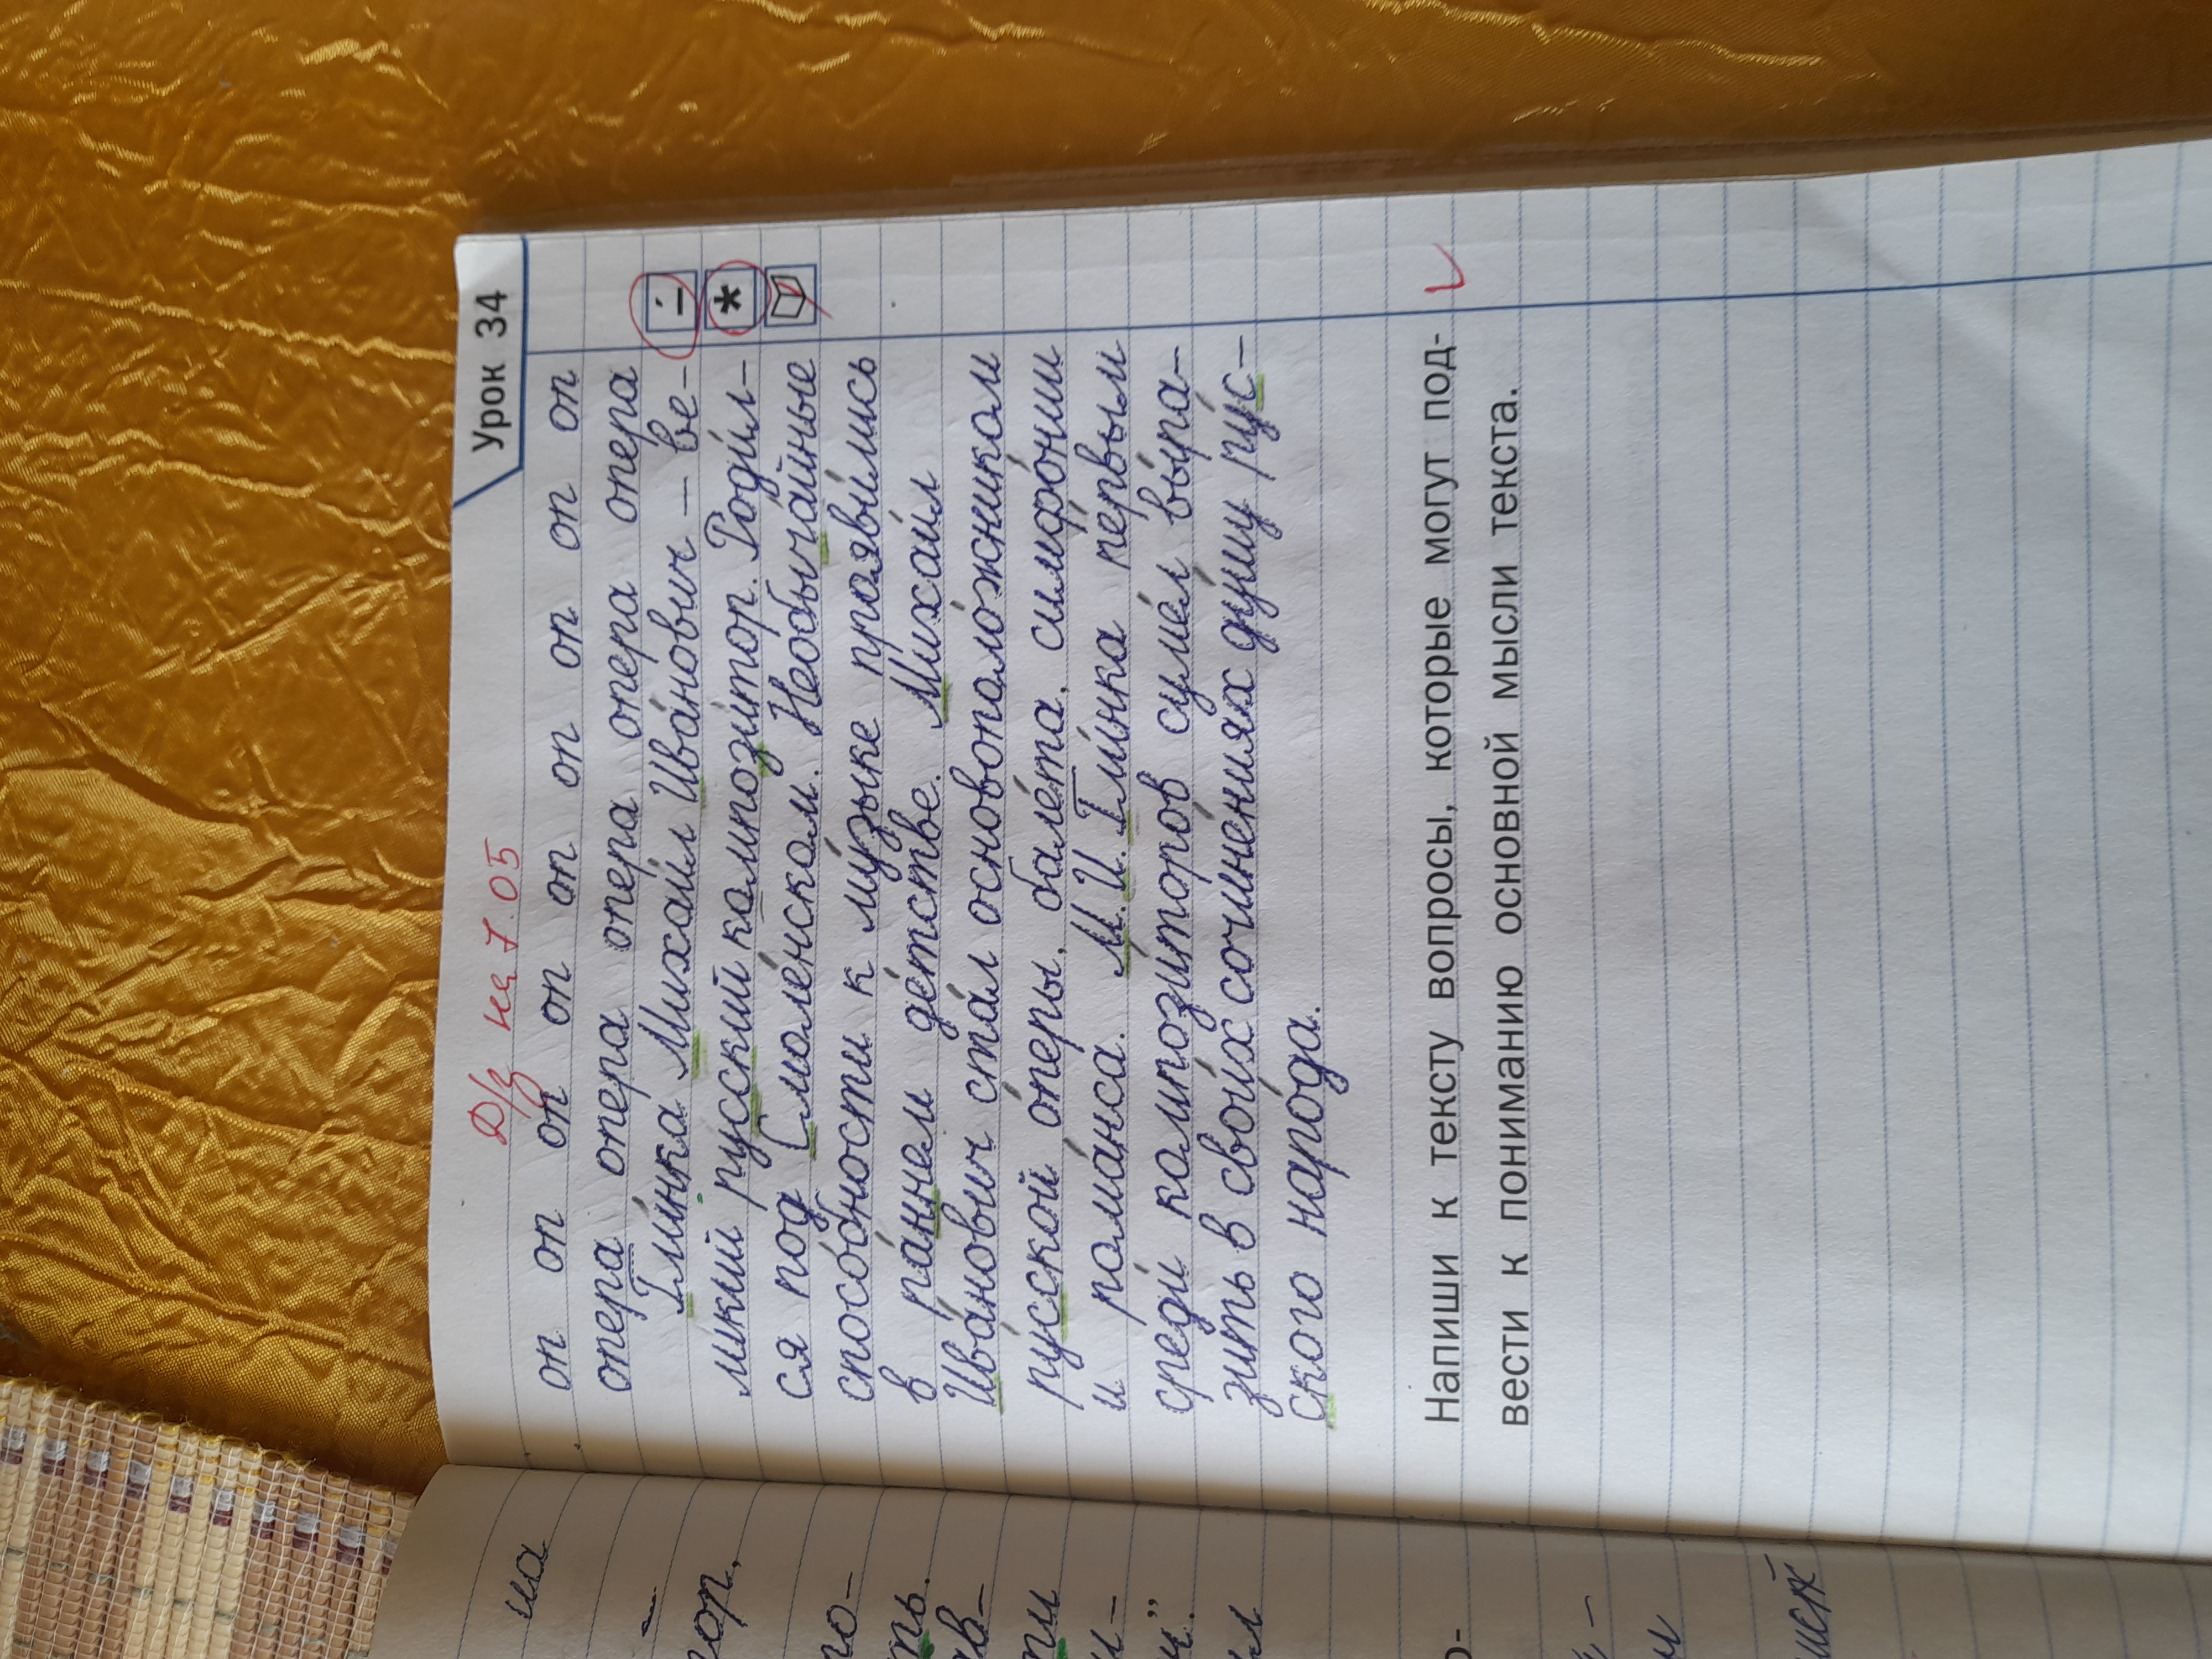 Урок 34
Д/з на 7.05
оп оп оп оп оп оп оп оп оп оп
опера опера опера опера опера опера опера
Гли́нка Михаи́л Ива́нович – ве-
ли́кий ру́сский компози́тор. Роди́л-
ся под Смоле́нском. Необыча́йные
спосо́бности к му́зыке прояви́лись
в ра́ннем де́тстве. Михаи́л
Ива́нович ста́л основополо́жником
ру́сской о́перы, бале́та, симфо́нии
и рома́нса. М.И. Гли́нка пе́рвым
среди́ компози́торов суме́л вы́ра-
зить в свои́х сочине́ниях ду́шу ру́с-
ского наро́да.
Напиши к тексту вопросы, которые могут под-
вести к пониманию основной мысли текста.
на
тор,